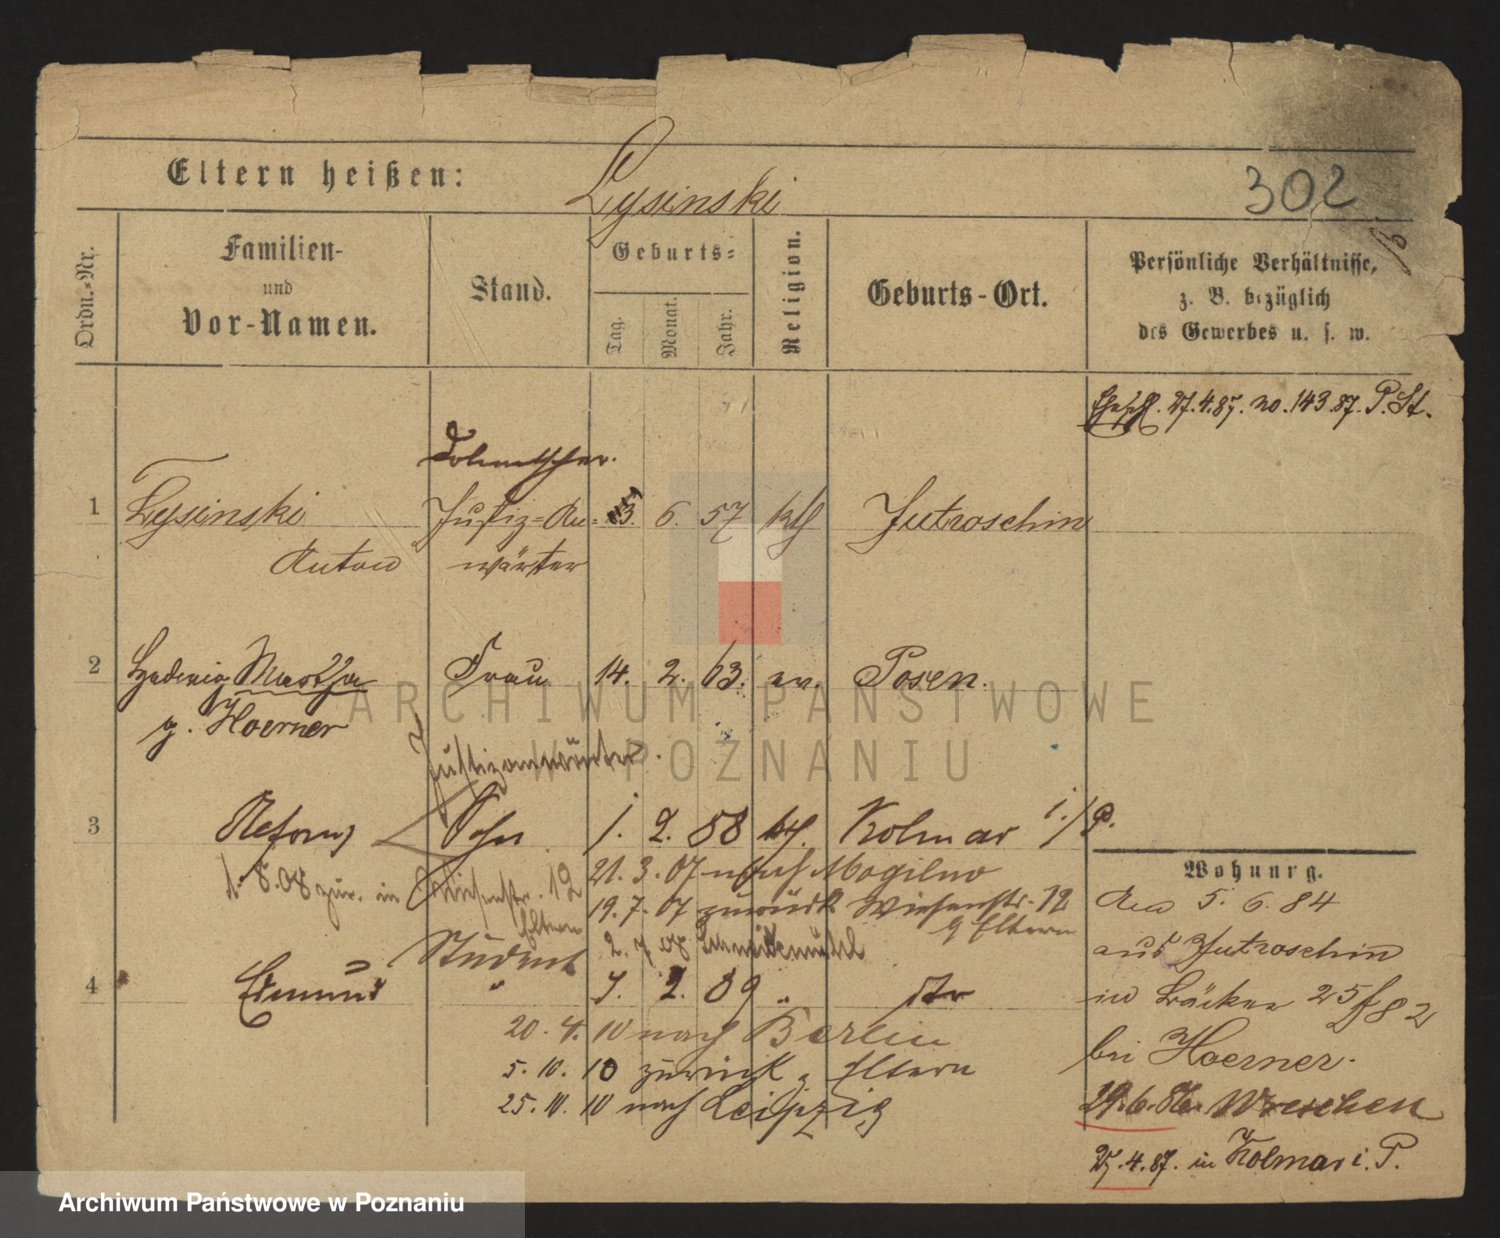 Eltern heißen: Lysinski
302
Ordn.-Nr.
Familien- und Vor-Namen.
Stand.
Geburts-
Tag. Monat. Jahr.
Religion.
Geburts-Ort.
Persönliche Verhältnisse,
z. B. bezüglich
des Gewerbes u. s. w.
27.4.87. no. 143.87. P. St.
Dolmetscher.
1 Lysinski Justiz-An- 3. 6. 57 kth Jutroschin
Anton wärter
2 Hedwig Martha Frau 14. 2. 63. ev. Posen.
g. Hoerner
Justizanwärter.
3 Sohn 1. 2. 88 kth. Kolmar i./P.
21. 3. 07 nach Mogilno
1. 8.08 zur. in Wiesenstr. 12
Eltern
19. 7. 07 zurück Wiesenstr. 12
Eltern
Student 2. 7 08 Schneidemühl
4 Edmund " 7. 2. 89 " dto
20. 4. 10 nach Berlin
5. 10. 10 zurück z Eltern
25. 10. 10 nach Leipzig
Wohnung.
5. 6. 84
aus Jutroschin
bei Hoerner.
29.6.86. Wreschen
27.4.87. in Kolmar i. P.
ARCHIWUM PAŃSTWOWE
W POZNANIU
Archiwum Państwowe w Poznaniu